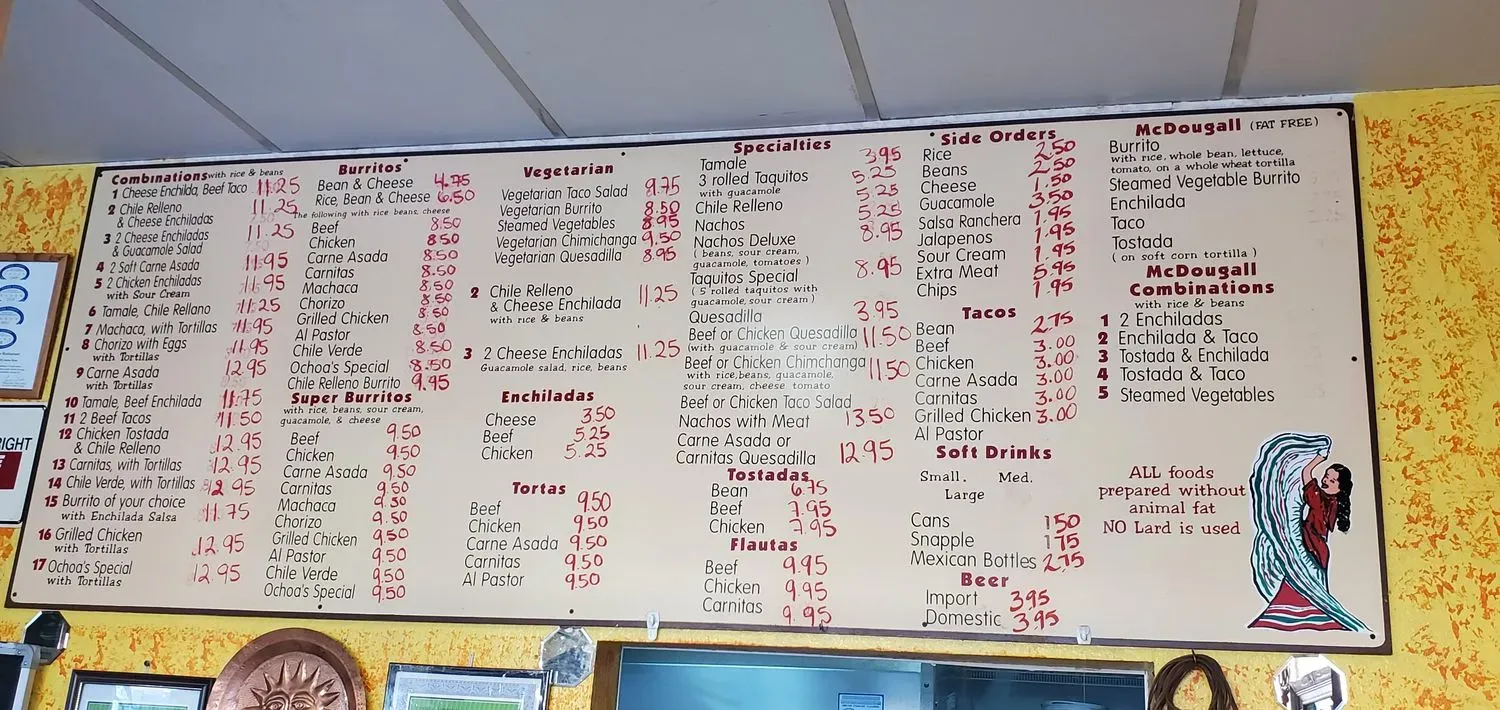 Combinations with rice & beans
1 Cheese Enchilda, Beef Taco 11.25
2 Chile Relleno 11.25
& Cheese Enchiladas
3 2 Cheese Enchiladas 11.25
& Guacamole Salad
4 2 Soft Carne Asada 11.95
5 2 Chicken Enchiladas 11.95
with Sour Cream
6 Tamale, Chile Rellano 11.25
7 Machaca, with Tortillas 11.95
8 Chorizo with Eggs 11.95
with Tortillas
9 Carne Asada 12.95
with Tortillas
10 Tamale, Beef Enchilada 11.75
11 2 Beef Tacos 11.50
12 Chicken Tostada 12.95
& Chile Relleno
13 Carnitas, with Tortillas 12.95
14 Chile Verde, with Tortillas 12.95
15 Burrito of your choice 11.75
with Enchilada Salsa
16 Grilled Chicken 12.95
with Tortillas
17 Ochoa's Special 12.95
with Tortillas
Burritos
Bean & Cheese 4.75
Rice, Bean & Cheese 6.50
The following with rice beans, cheese
Beef 8.50
Chicken 8.50
Carne Asada 8.50
Carnitas 8.50
Machaca 8.50
Chorizo 8.50
Grilled Chicken 8.50
Al Pastor 8.50
Chile Verde 8.50
Ochoa's Special 8.50
Chile Relleno Burrito 9.95
Super Burritos
with rice, beans, sour cream,
guacamole, & cheese
Beef 9.50
Chicken 9.50
Carne Asada 9.50
Carnitas 9.50
Machaca 9.50
Chorizo 9.50
Grilled Chicken 9.50
Al Pastor 9.50
Chile Verde 9.50
Ochoa's Special 9.50
Vegetarian
Vegetarian Taco Salad 9.75
Vegetarian Burrito 8.50
Steamed Vegetables 8.95
Vegetarian Chimichanga 9.50
Vegetarian Quesadilla 8.95
2 Chile Relleno 11.25
& Cheese Enchilada
with rice & beans
3 2 Cheese Enchiladas 11.25
Guacamole salad, rice, beans
Enchiladas
Cheese 3.50
Beef 5.25
Chicken 5.25
Tortas
Beef 9.50
Chicken 9.50
Carne Asada 9.50
Carnitas 9.50
Al Pastor 9.50
Specialties
Tamale 3.95
3 rolled Taquitos 5.25
with guacamole
Chile Relleno 5.25
Nachos 5.25
Nachos Deluxe 8.95
( beans, sour cream,
guacamole, tomatoes )
Taquitos Special 8.95
( 5 rolled taquitos with
guacamole, sour cream )
Quesadilla 3.95
Beef or Chicken Quesadilla 11.50
(with guacamole & sour cream)
Beef or Chicken Chimchanga 11.50
with rice, beans, guacamole,
sour cream, cheese, tomato
Beef or Chicken Taco Salad
Nachos with Meat 13.50
Carne Asada or
Carnitas Quesadilla 12.95
Tostadas
Bean 6.75
Beef 7.95
Chicken 7.95
Flautas
Beef 9.95
Chicken 9.95
Carnitas 9.95
Side Orders
Rice 2.50
Beans 2.50
Cheese 1.50
Guacamole 3.50
Salsa Ranchera 1.95
Jalapenos 1.95
Sour Cream 1.95
Extra Meat 5.95
Chips 1.95
Tacos
Bean 2.75
Beef 3.00
Chicken 3.00
Carne Asada 3.00
Carnitas 3.00
Grilled Chicken 3.00
Al Pastor
Soft Drinks
Small. Med.
Large
Cans 150
Snapple 175
Mexican Bottles 2.75
Beer
Import 395
Domestic 3.95
McDougall (FAT FREE)
Burrito
with rice, whole bean, lettuce,
tomato, on a whole wheat tortilla
Steamed Vegetable Burrito
Enchilada
Taco
Tostada
( on soft corn tortilla )
McDougall
Combinations
with rice & beans
1 2 Enchiladas
2 Enchilada & Taco
3 Tostada & Enchilada
4 Tostada & Taco
5 Steamed Vegetables
ALL foods
prepared without
animal fat
NO Lard is used
RIGHT